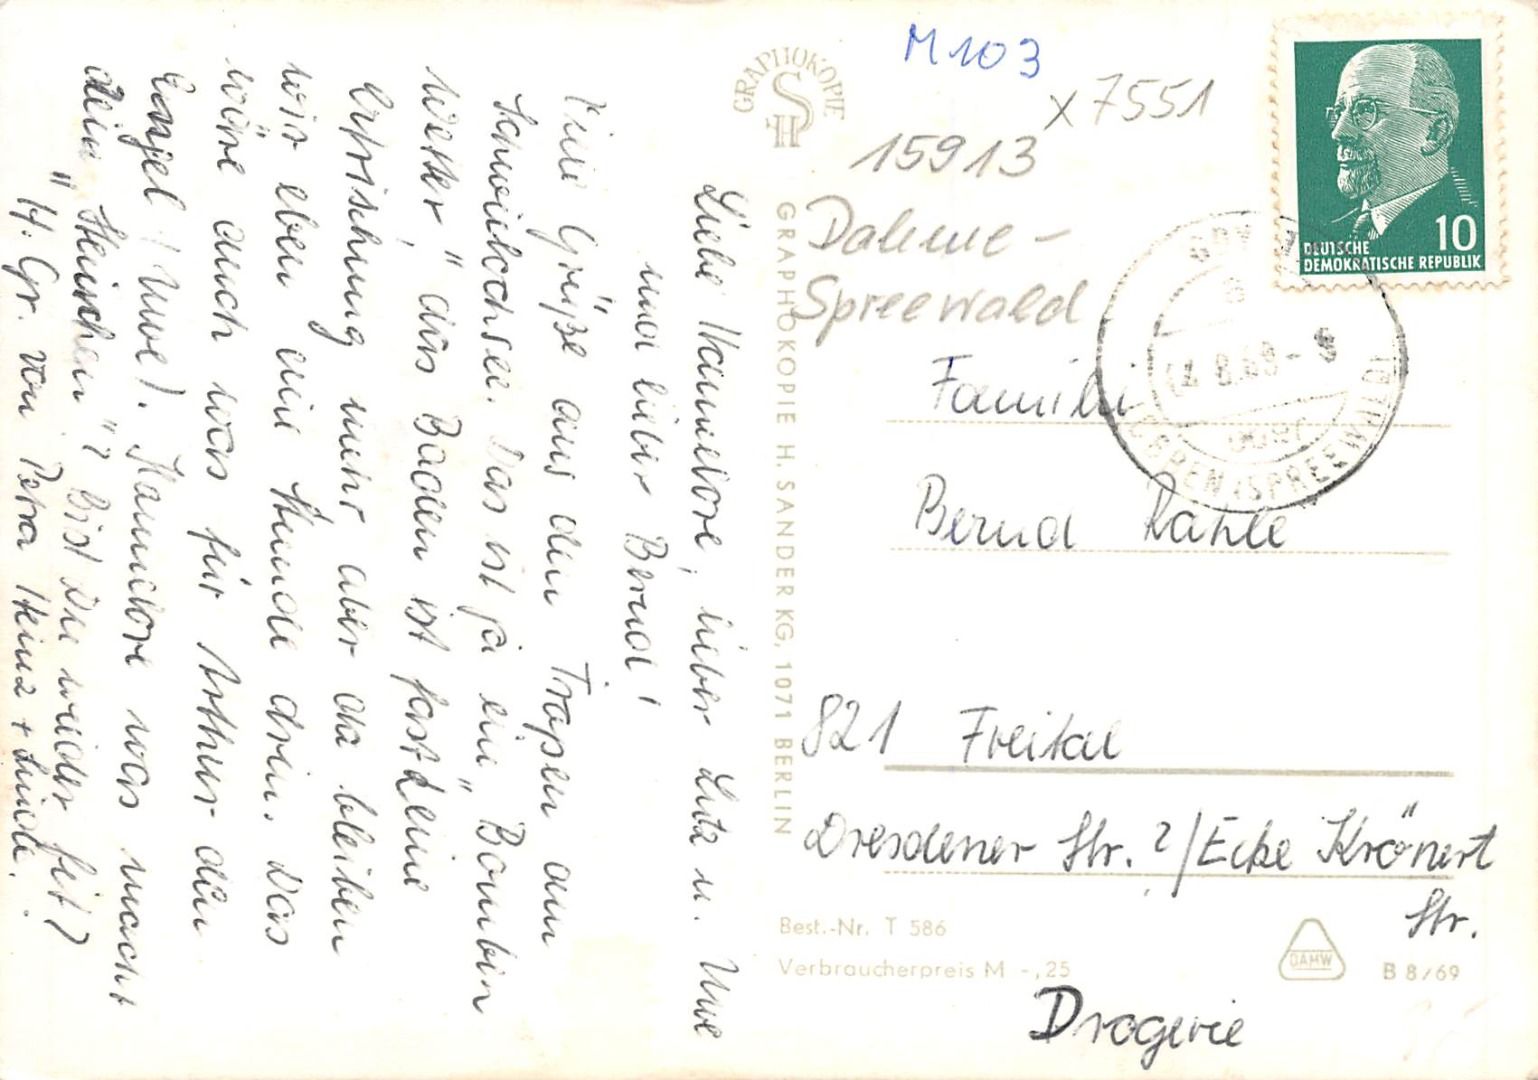 Liebe Hannelore, lieber Lutz u. Uwe
und lieber Bernd!
Viele Grüße aus den Tropen am
Schwielochsee. Das ist ja ein "Bomben
wetter", das Baden ist fast keine
Erfrischung mehr aber da bleiben
wir eben eine Stunde drin. Das
wäre auch was für Arthur den
Engel (Uwe). Hannelore was macht
dein "Steinchen"? Bist Du wieder fit?
H. Gr. von Petra Heinz +
GRAPHOKOPIE
H S
GRAPHOKOPIE H. SANDER KG, 1071 BERLIN
M 103
x 7551
15913
Dahme-
Spreewald
DEUTSCHE
DEMOKRATISCHE REPUBLIK
10
(SPREEWALD)
Familie
Bernd Rahle
821 Freital
Dresdener Str. ?/Ecke Krönert
Str.
Drogerie
Best.-Nr. T 586
Verbraucherpreis M -,25
DAMW
B 8/69